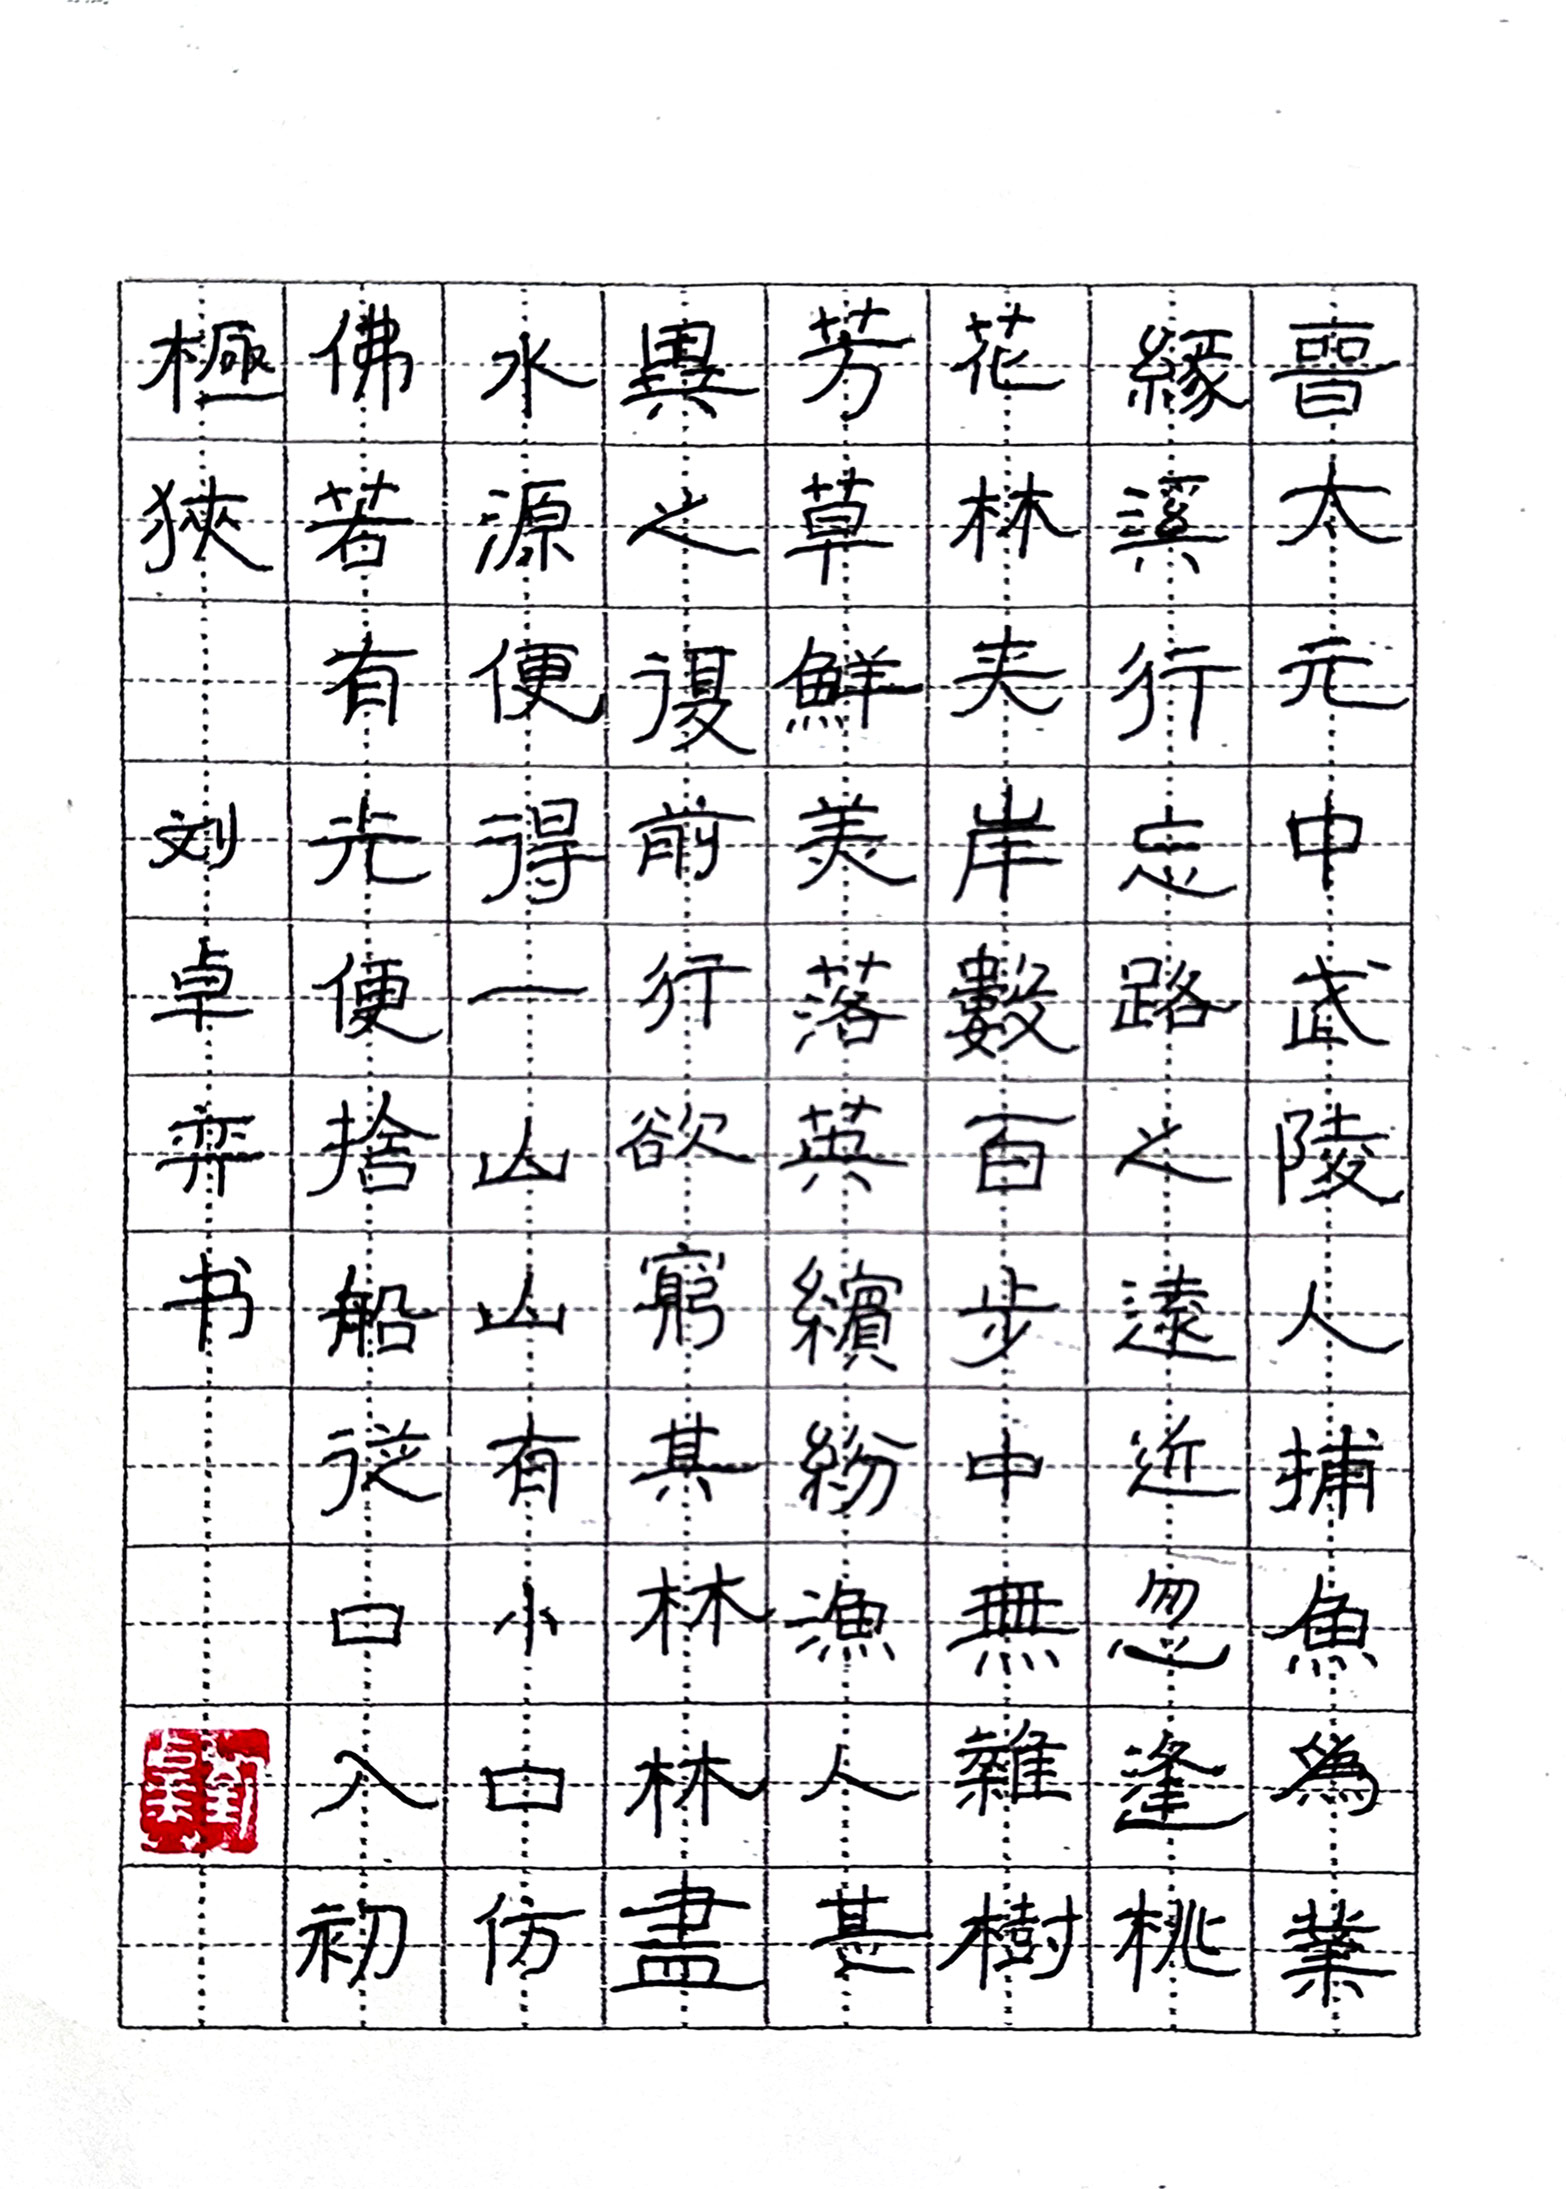 晉太元中武陵人捕魚為業
緣溪行忘路之遠近忽逢桃
花林夹岸數百步中無雜樹
芳草鮮美落英繽紛漁人甚
異之復前行欲窮其林林盡
水源便得一山山有小口仿
佛若有光便捨船従口入初
極狹
刘卓弈书